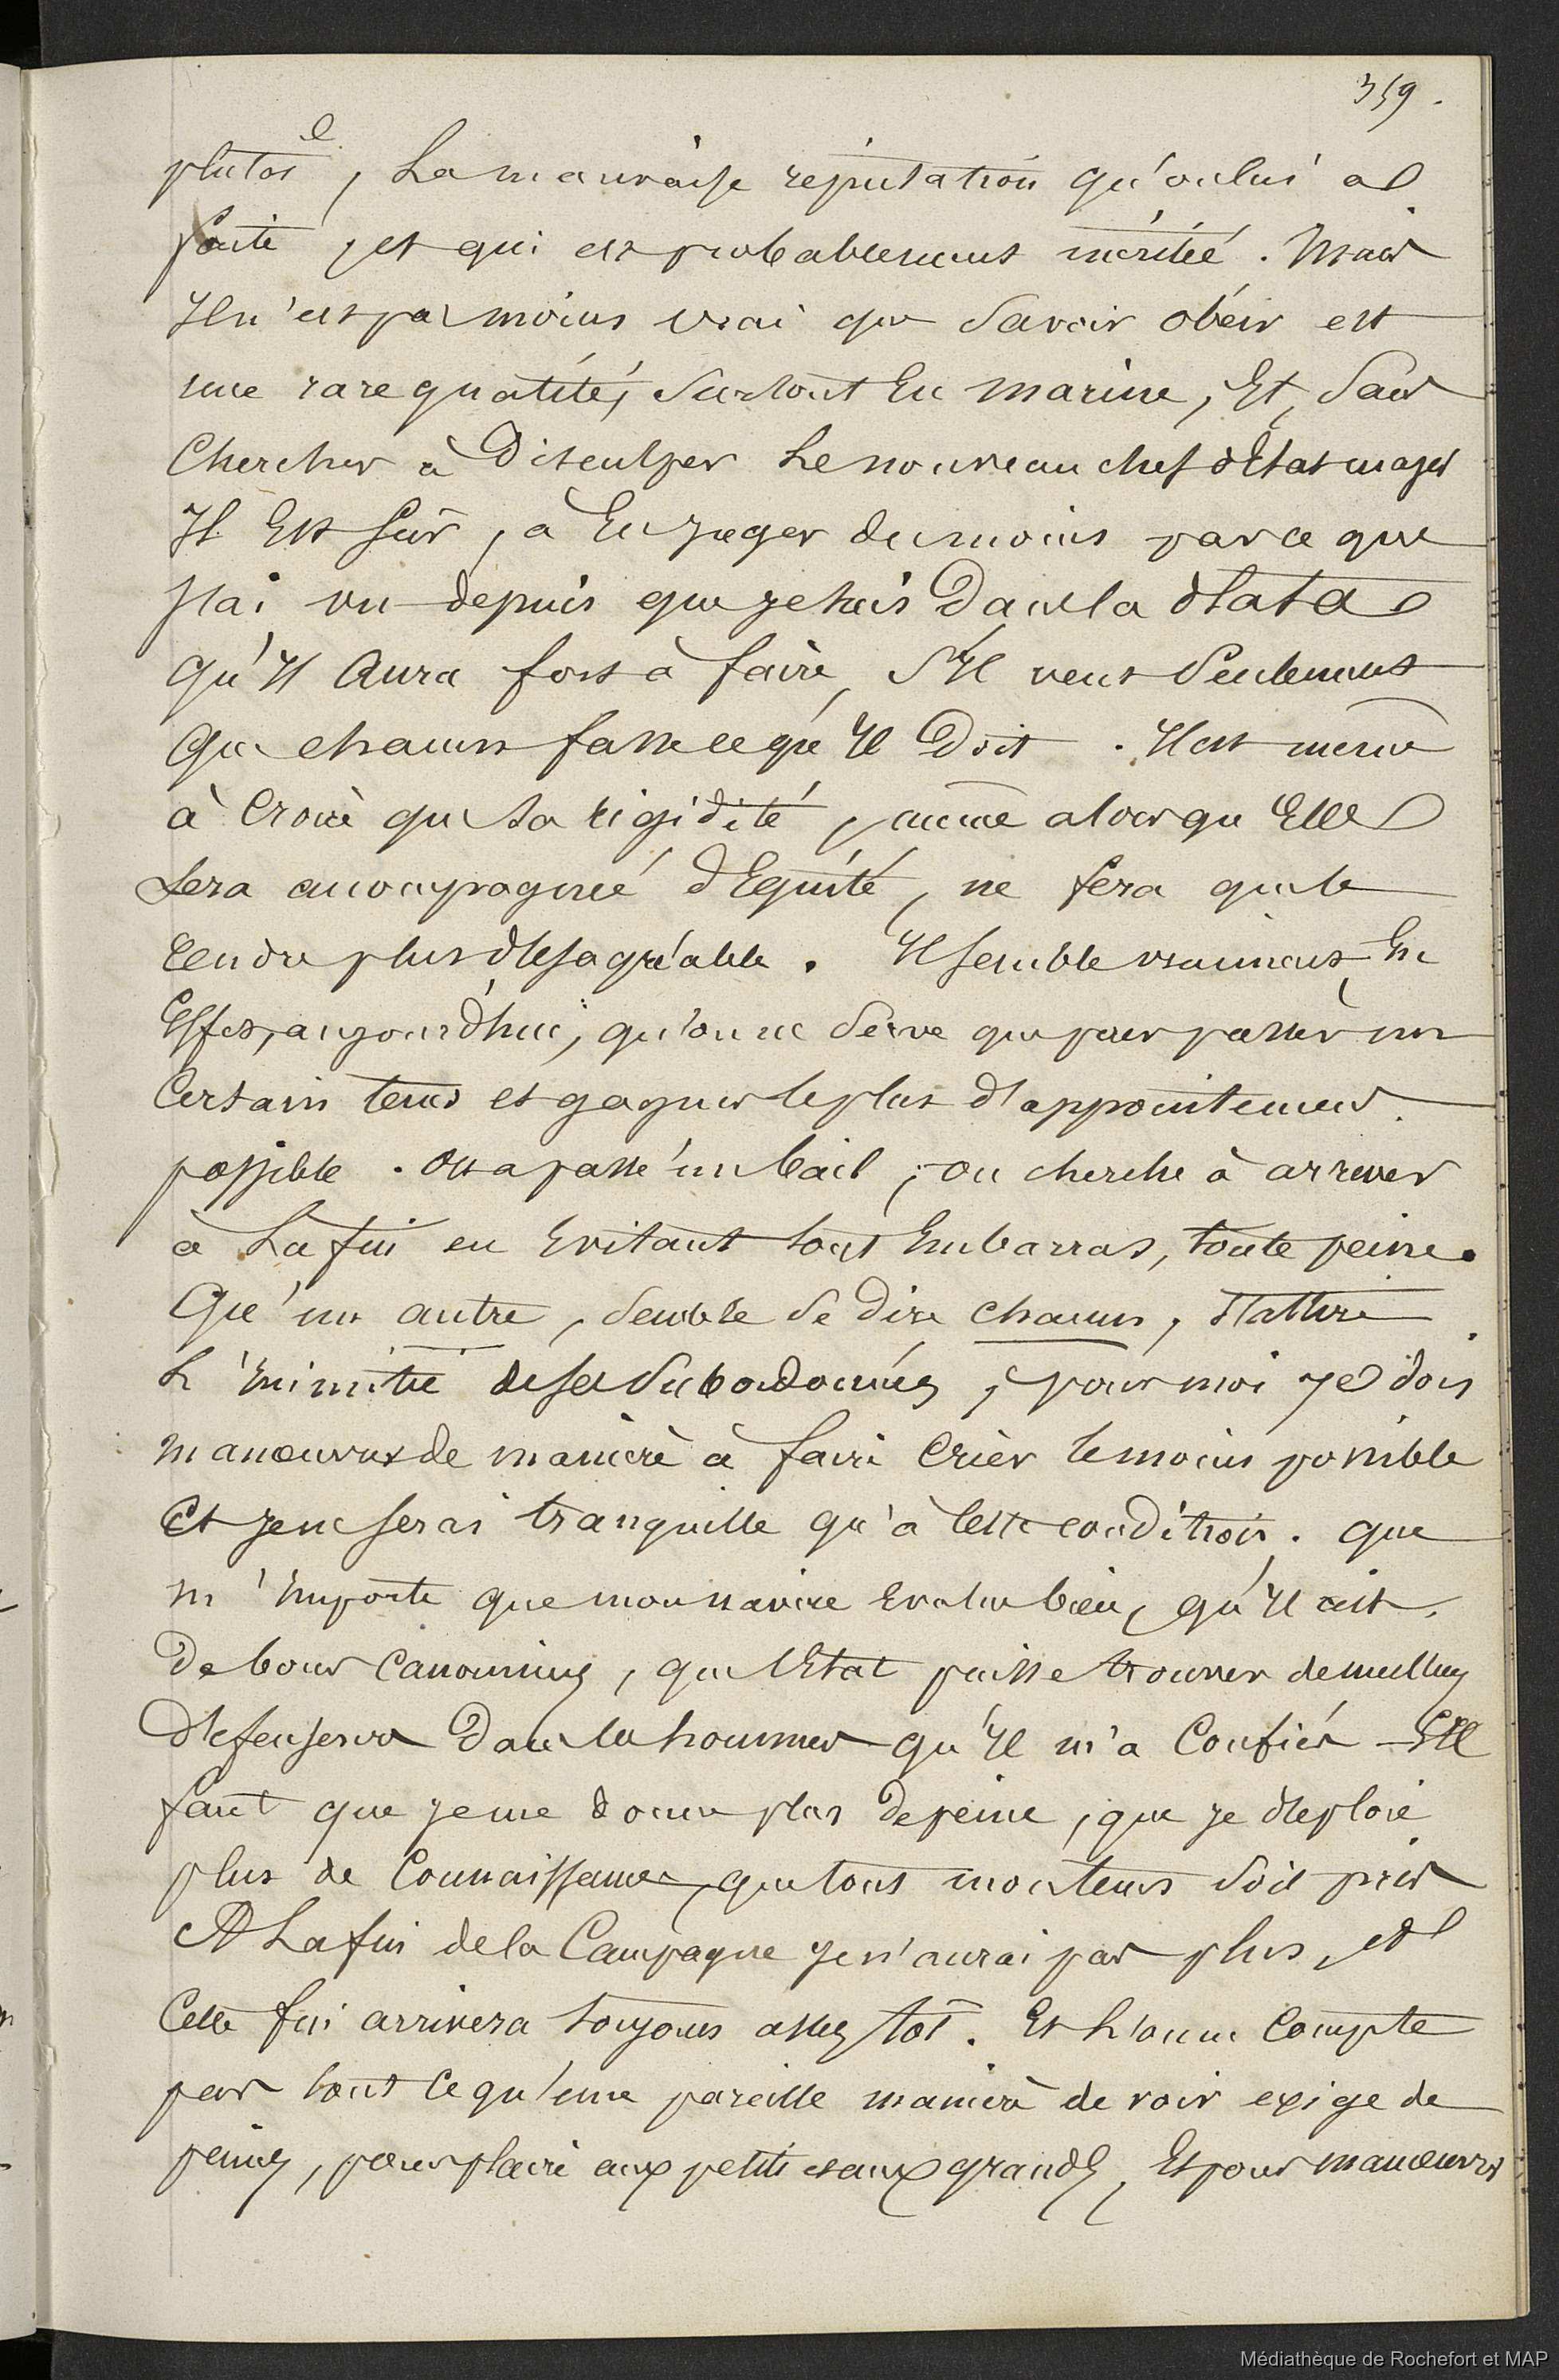 359.
plutôt, La mauvaise réputation qu'on lui a
faite, et qui est probablement méritée. Mais
Il n'est pas moins vrai que Savoir obéir est
une rare qualité, Surtout En marine, Et, Sans
Chercher à Disculper Le nouveau chef d'Etat major
Il Est Sûr, à En juger du moins par ce que
j'ai vu depuis que je suis Dans la Plata
qu'Il Aura fort à faire, S'Il veut Seulement
Que chacun fasse ce qu'Il Doit. Il est même
à Croire que Sa rigidité, même alors qu'Elle
Sera accompagnée d'Equité, ne fera que le
rendre plus désagréable. Il semble vraiment, En
Effet, aujourd'hui, qu'on ne Serve que pour passer un
Certain tems et gagner le plus d'appointemens
possible. On a passé un bail, on cherche à arriver
à La fin en Evitant tout Embarras, toute peine.
Qu'un autre, Semble Se Dire chacun, s'attire
L'Inimitié de Ses Subordonnés, pour moi je dois
manoeuvrer de manière à faire Crier le moins possible
Et je ne serai tranquille qu'à Cette condition. que
m'Importe que mon navire Evolue bien, qu'Il ait
De bons Canonniers, que l'Etat puisse trouver de meilleurs
défenseurs Dans les hommes qu'Il m'a Confiés S'Il
faut que je me donne plus de peine, que je déploie
plus de Connaissances, que tout mon tems Soit pris
A La fin de la Campagne je n'aurai pas plus, et
Cette fin arrivera toujours assez tôt. Et L'on ne Compte
pas tout ce qu'une pareille manière de voir exige de
peines, pour plaire aux petits et aux grands, Et pour manoeuvrer
Médiathèque de Rochefort et MAP